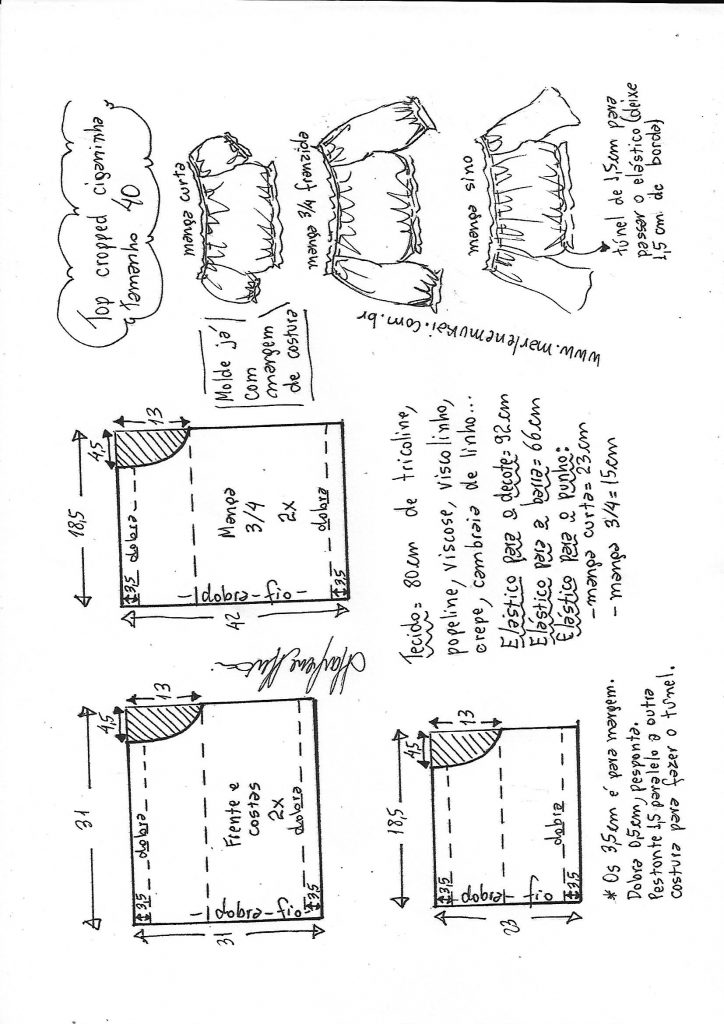 Top cropped ciganinha
Tamanho 40
manga curta
manga 3/4 franzida
manga sino
túnel de 1,5cm para
passar o elástico (deixe
1,5 cm de borda)
www.marlenemukai.com.br
Molde já
com
margem
de costura
18,5
4,5
13
dobra
Manga
3/4
2x
dobra
3,5
fio - dobra
3,5
42
31
4,5
13
dobra
Frente e
costas
2x
dobra
3,5
fio - dobra
3,5
31
18,5
4,5
13
dobra
3,5
fio - dobra
3,5
23
Tecido = 80cm de tricoline,
popeline, viscose, viscolinho,
crepe, cambraia de linho...
Elástico para o decote = 92cm
Elástico para a barra = 66cm
Elástico para o punho:
- manga curta = 23cm
- manga 3/4 = 15cm
* Os 3,5cm é para margem.
Dobra 0,5cm, pesponta.
Pestonte 1,5 paralelo a outra
costura para fazer o túnel.